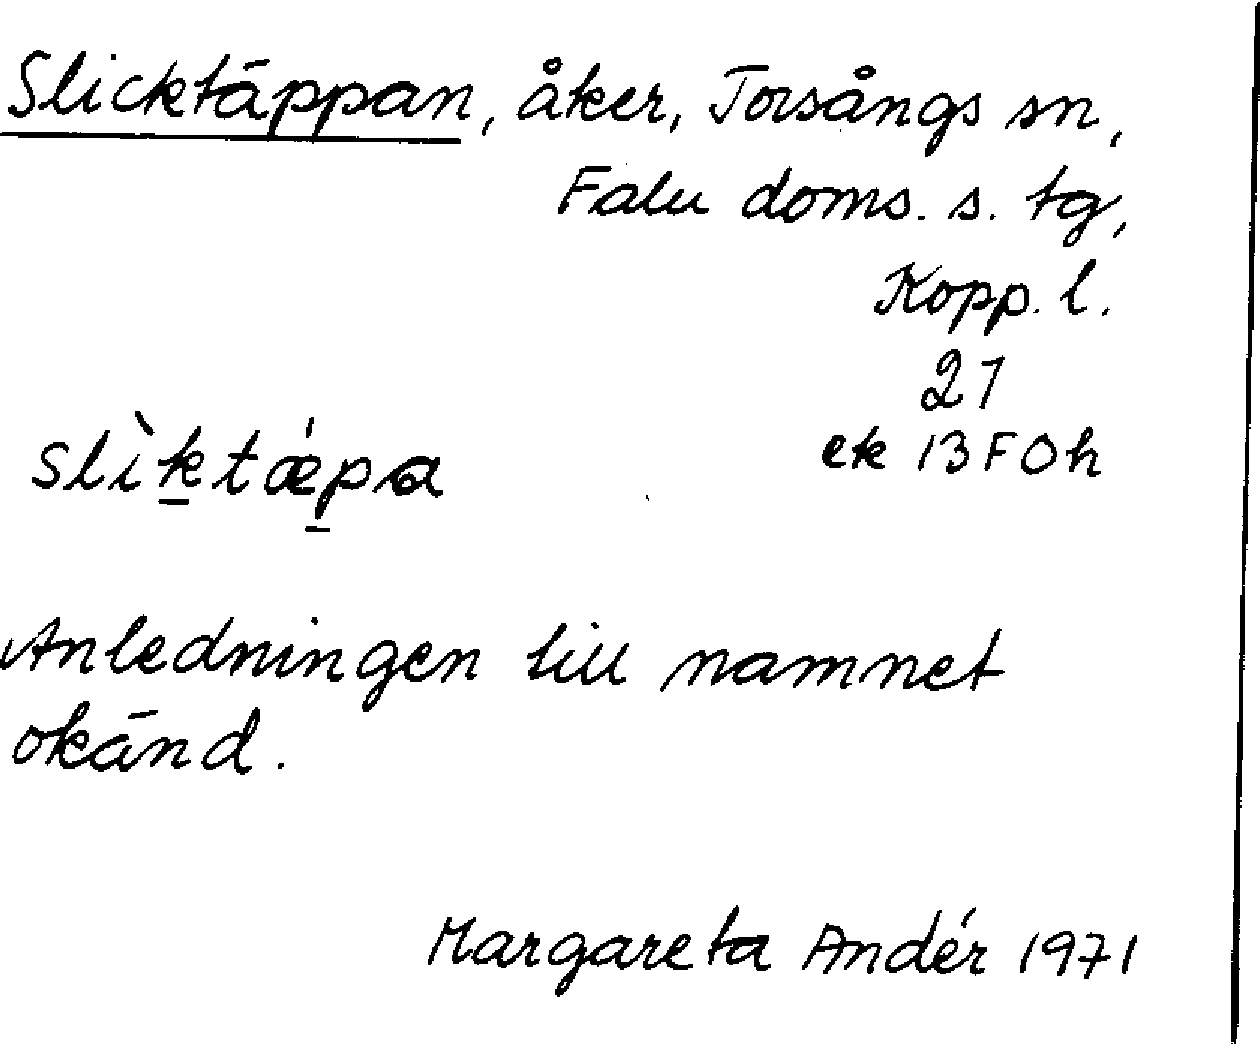 Slicktäppan, åker, Torsångs sn,
Falu doms. s. tg,
Kopp. l.
21
ek 13 F 0 h
slìk̠tǽp̠a
Anledningen till namnet
okänd.
Margareta Andér 1971